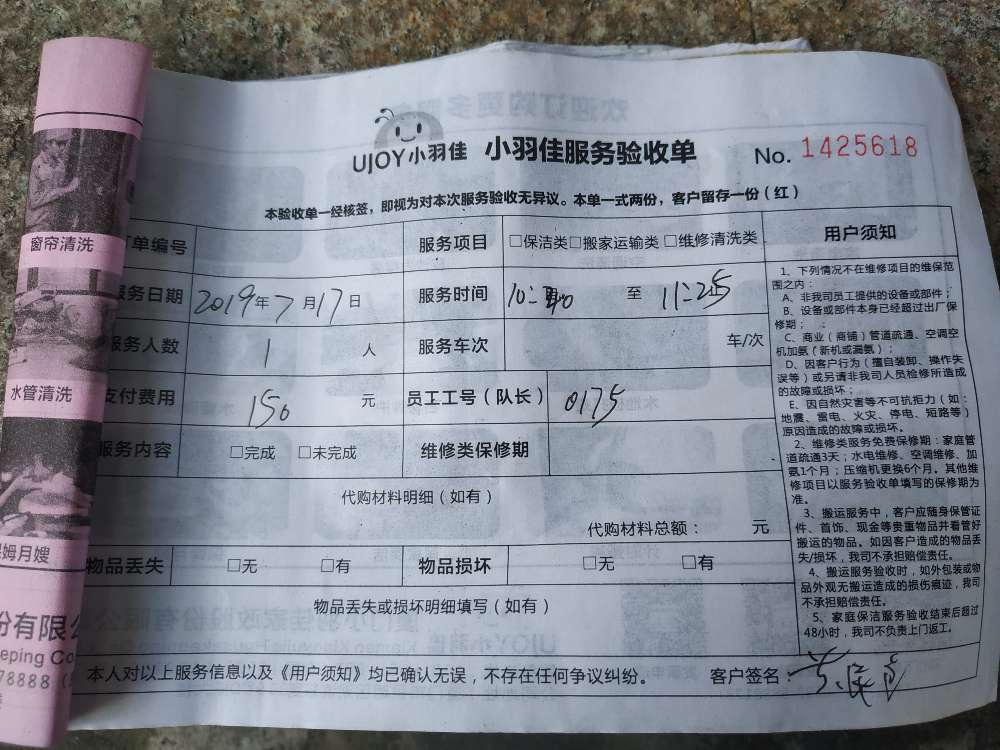 UJOY小羽佳 小羽佳服务验收单 No. 1425618
本验收单一经核签，即视为对本次服务验收无异议。本单一式两份，客户留存一份（红）
单编号 服务项目 □保洁类□搬家运输类 □维修清洗类
服务日期 2019年7月17日 服务时间 10: 至 11:25
服务人数 1 人 服务车次 车/次
支付费用 150 元 员工工号（队长） 0175
服务内容 □完成 □未完成 维修类保修期
代购材料明细（如有）
代购材料总额： 元
物品丢失 □无 □有 物品损坏 □无 □有
物品丢失或损坏明细填写（如有）
本人对以上服务信息以及《用户须知》均已确认无误，不存在任何争议纠纷。 客户签名：
用户须知
1、下列情况不在维修项目的维保范
围之内：
A、非我司员工提供的设备或部件；
B、设备或部件本身已经超过出厂保
修期；
C、商业（商铺）管道疏通、空调空
机加氨（新机或漏氨）；
D、因客户行为（擅自装卸、操作失
误等）或另请非我司人员检修所造成
的故障或损坏；
E、因自然灾害等不可抗拒力（如：
地震、雷电、火灾、停电、短路等）
原因造成的故障或损坏。
2、维修类服务免费保修期：家庭管
道疏通3天；水电维修、空调维修、加
氨1个月；压缩机更换6个月。其他维
修项目以服务验收单填写的保修期为
准。
3、搬运服务中，客户应随身保管证
件、首饰、现金等贵重物品并看管好
搬运的物品。如因客户造成的物品丢
失/损坏，我司不承担赔偿责任。
4、搬运服务验收时，如外包装或物
品外观无搬运造成的损伤痕迹，我司
不承担赔偿责任。
5、家庭保洁服务验收结束后超过
48小时，我司不负责上门返工。
窗帘清洗
水管清洗
姆月嫂
份有限公
eping Co
78888